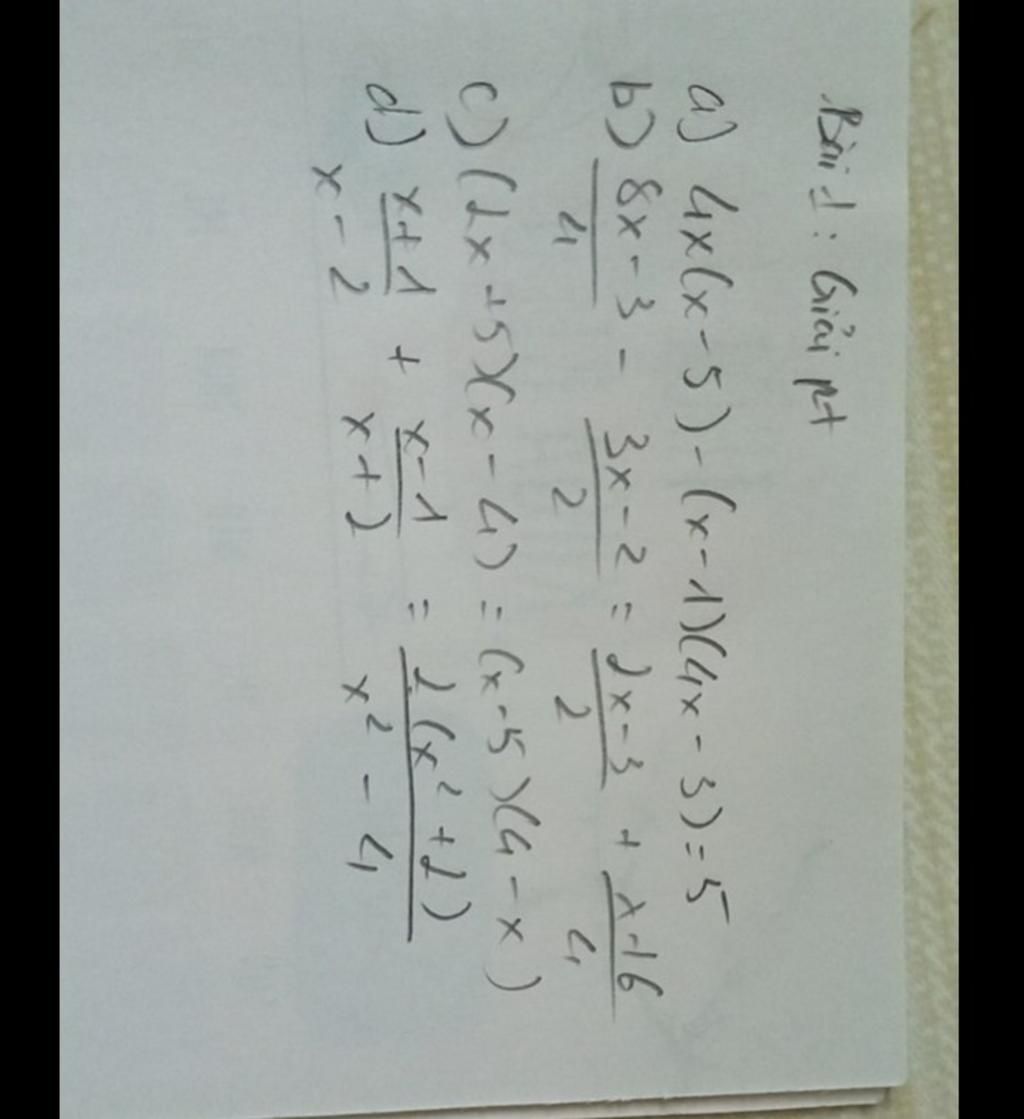 Bài 1: Giải pt
a) 4x(x-5)-(x-1)(4x-3)=5
b) \frac{8x-3}{4} - \frac{3x-2}{2} = \frac{2x-3}{2} + \frac{x+6}{4}
c) (2x+5)(x-4) = (x-5)(4-x)
d) \frac{x+1}{x-2} + \frac{x-1}{x+2} = \frac{2(x²+2)}{x²-4}